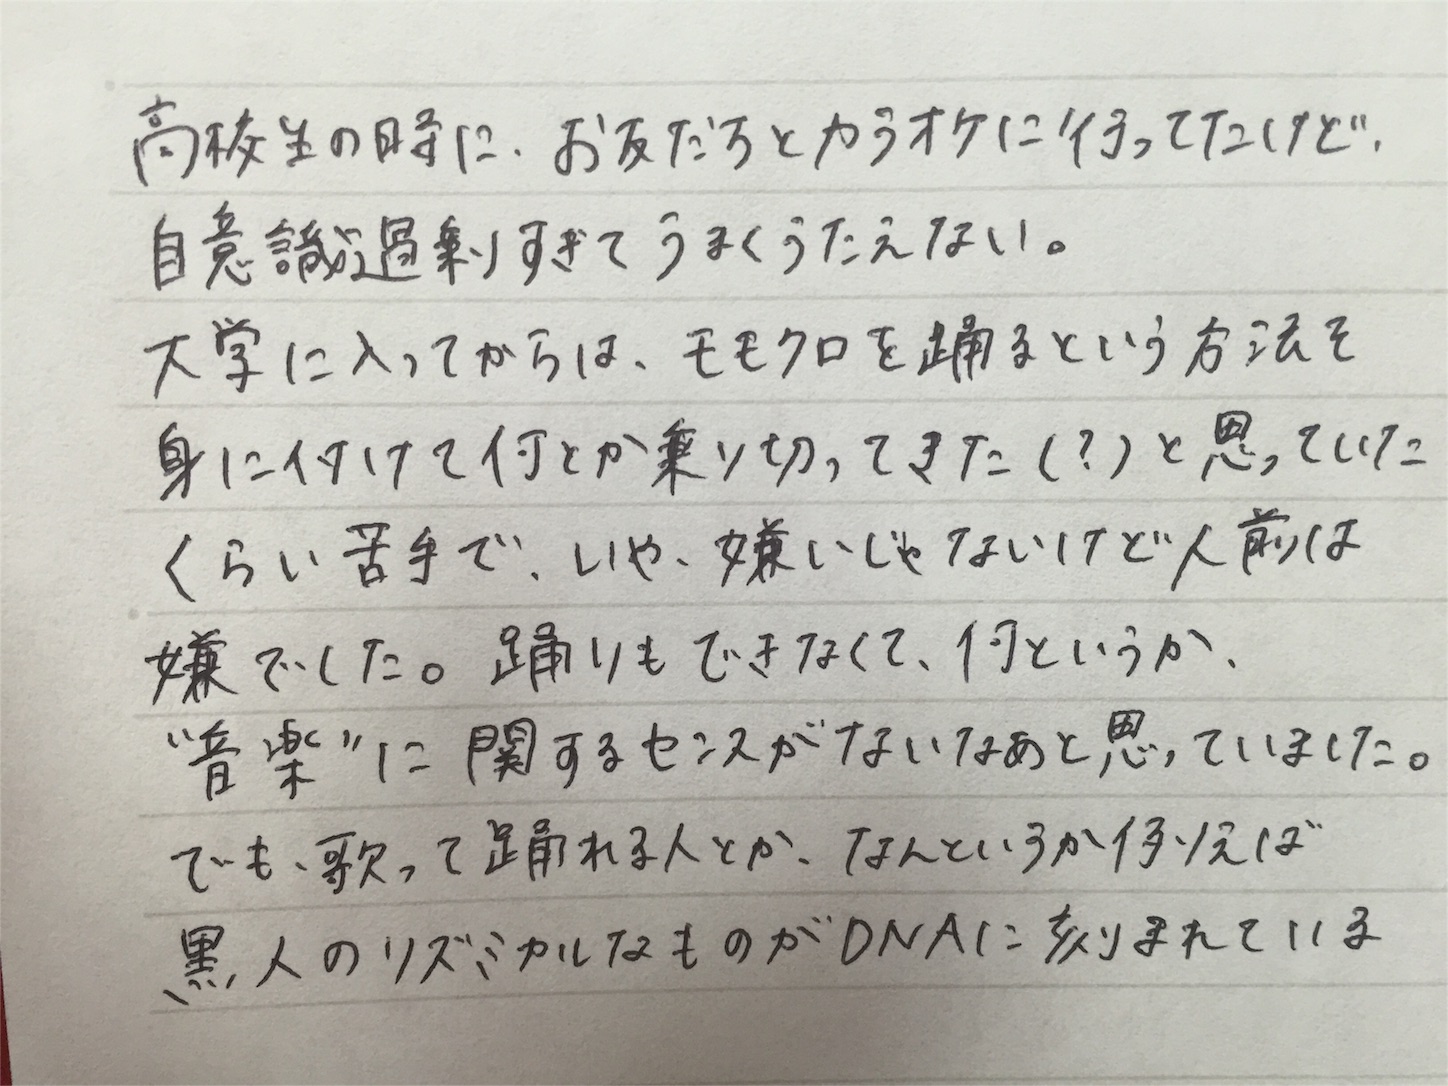 高校生の時に、お友だちとカラオケに行ってたけど、
自意識過剰すぎてうまくうたえない。
大学に入ってからは、モモクロを踊るという方法を
身に付けて何とか乗り切ってきた(?)と思っていた
くらい苦手で、いや、嫌いじゃないけど人前は
嫌でした。踊りもできなくて、何というか、
"音楽"に関するセンスがないなあと思っていました。
でも、歌って踊れる人とか、なんというか例えば
黒人のリズミカルなものがDNAに刻まれている